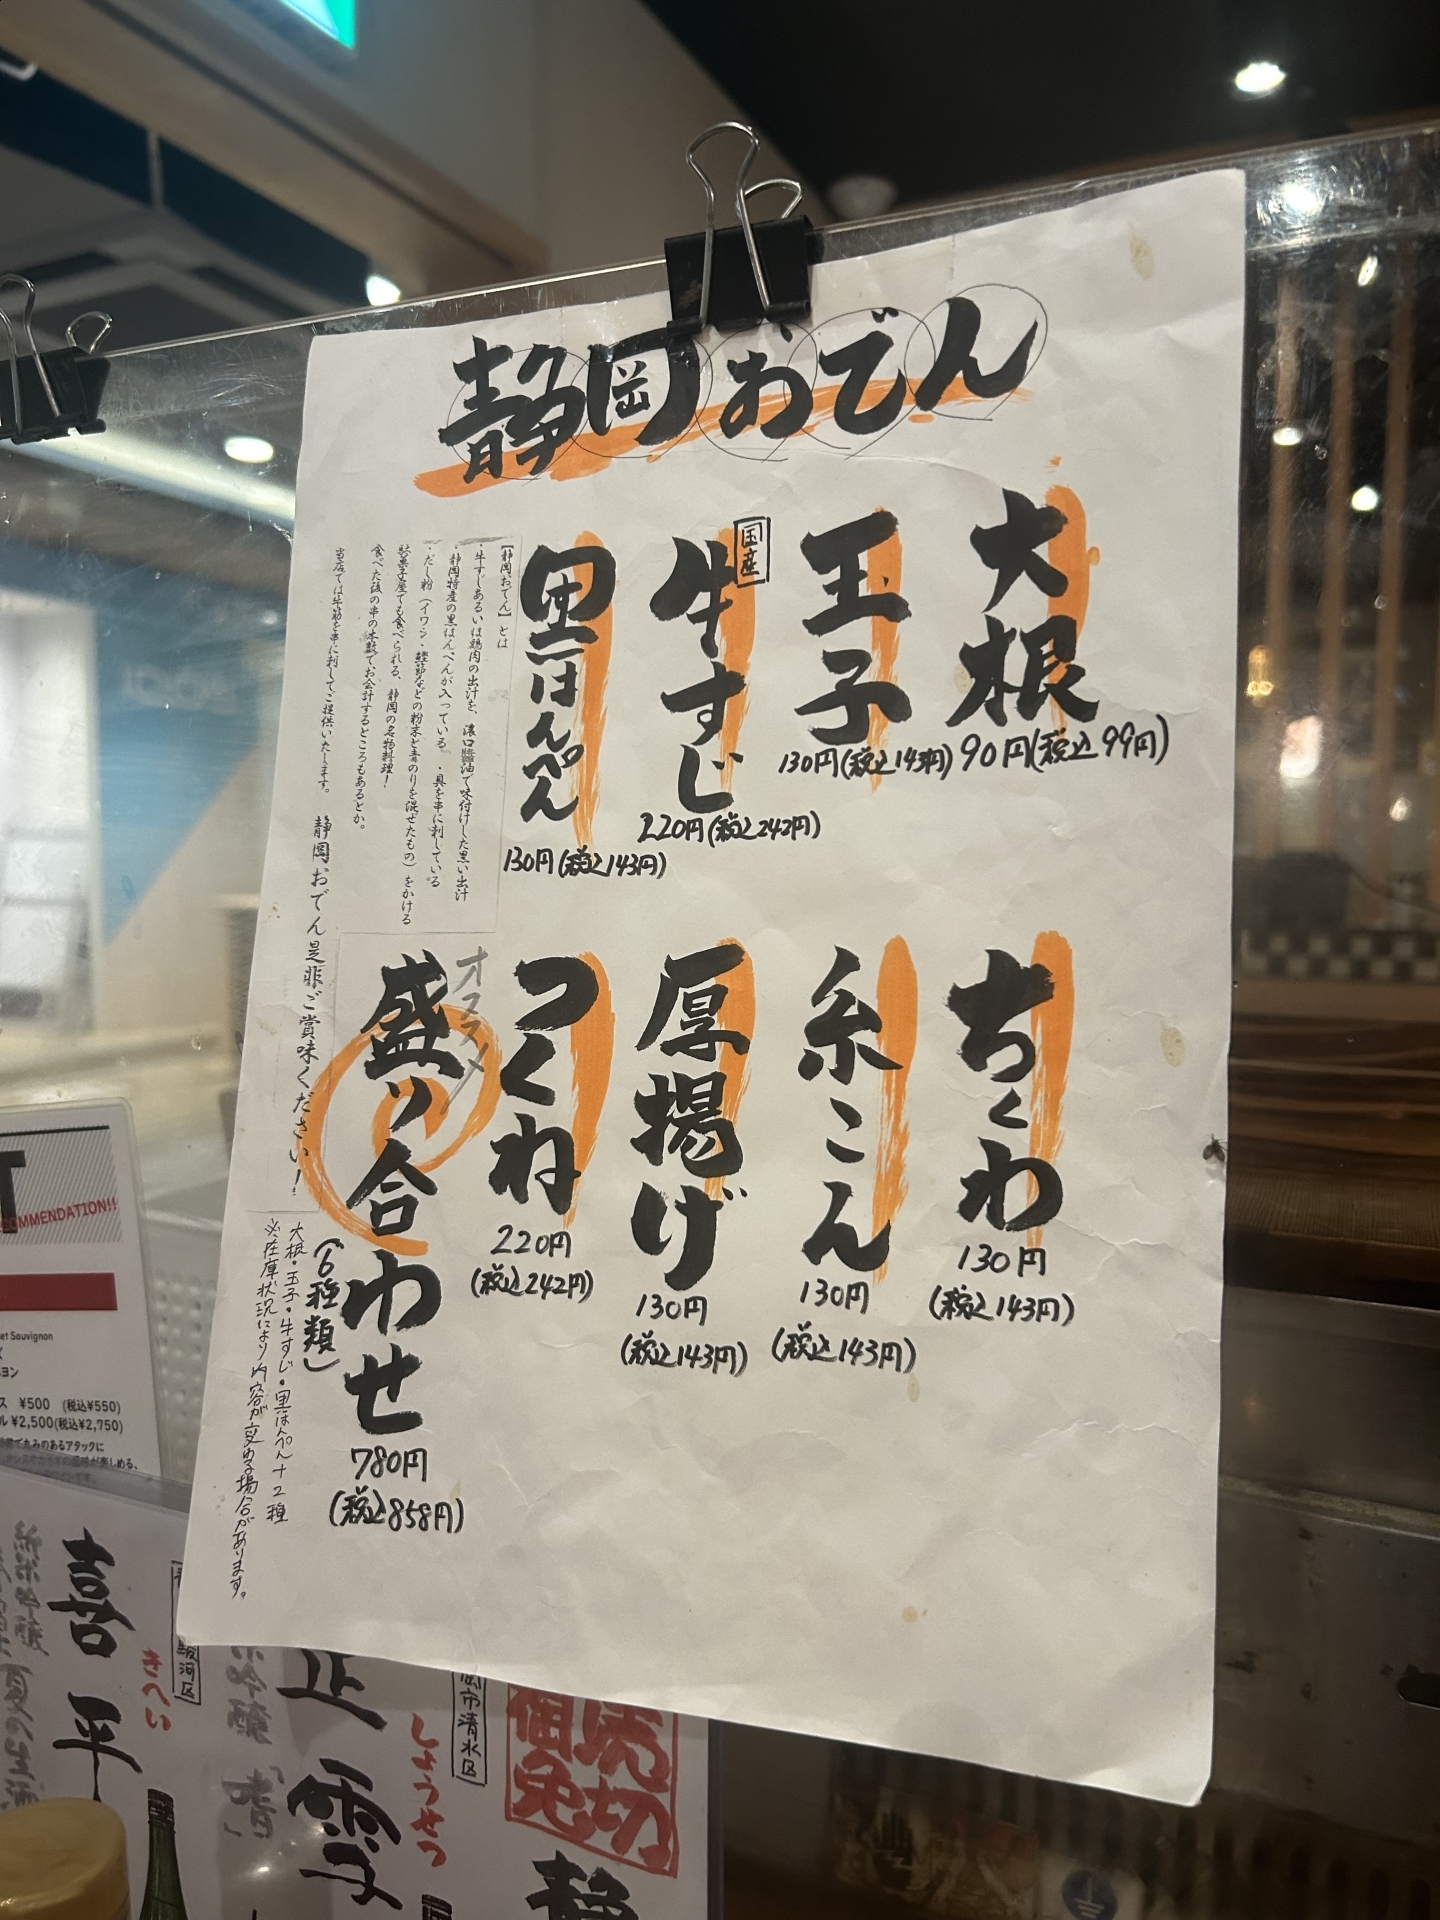 静岡おでん
大根
90円(税込99円)
玉子
130円(税込143円)
国産
牛すじ
220円(税込242円)
黒はんぺん
130円(税込143円)
【静岡おでん】とは
・牛すじあるいは鶏肉の出汁を、濃口醤油で味付けした黒い出汁
・静岡特産の黒はんぺんが入っている ・具を串に刺している
・だし粉(イワシ・鰹節などの粉末と青のりを混ぜたもの)をかける
駄菓子屋でも食べられる、静岡の名物料理!
食べた後の串の本数でお会計するところもあるとか。
当店では牛筋を串に刺してご提供いたします。
静岡おでん是非ご賞味ください!
ちくわ
130円
(税込143円)
糸こん
130円
(税込143円)
厚揚げ
130円
(税込143円)
つくね
220円
(税込242円)
オススメ
盛り合わせ
(6種類)
780円
(税込858円)
大根・玉子・牛すじ・黒はんぺん+2種
※在庫状況により内容が変わる場合があります。
T
COMMENDATION!!
et Sauvignon
ヨン
ス ¥500 (税込¥550)
ル ¥2,500(税込¥2,750)
で丸みのあるアタックに
が楽しめる、
喜平
きへい
駿河区
純米吟醸
夏の生酒
正雪
しょうせつ
米吟醸
岡市清水区
売切
御免
静